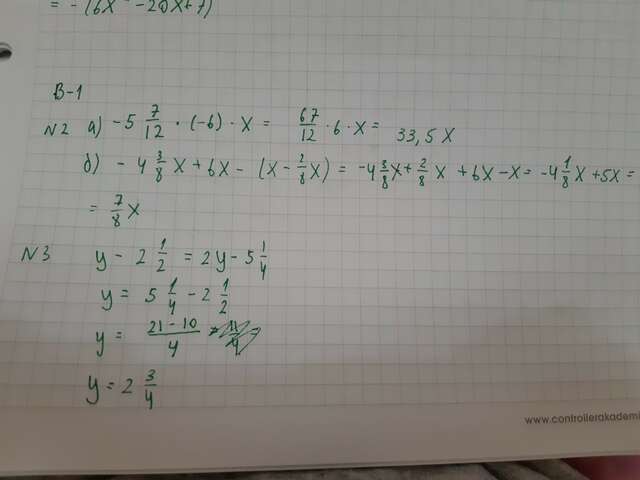 = - (6x² - 20x+7)
B-1
N2 a) -5 7/12 · (-6) · x = 67/12 · 6 · x = 33,5x
б) - 4 3/8 x + 6x - (x - 2/8 x) = -4 3/8 x + 2/8 x + 6x - x = -4 1/8 x + 5x =
= 7/8 x
N3 y - 2 1/2 = 2y - 5 1/4
y = 5 1/4 - 2 1/2
y = 21-10/4
y = 2 3/4
www.controllerakademi